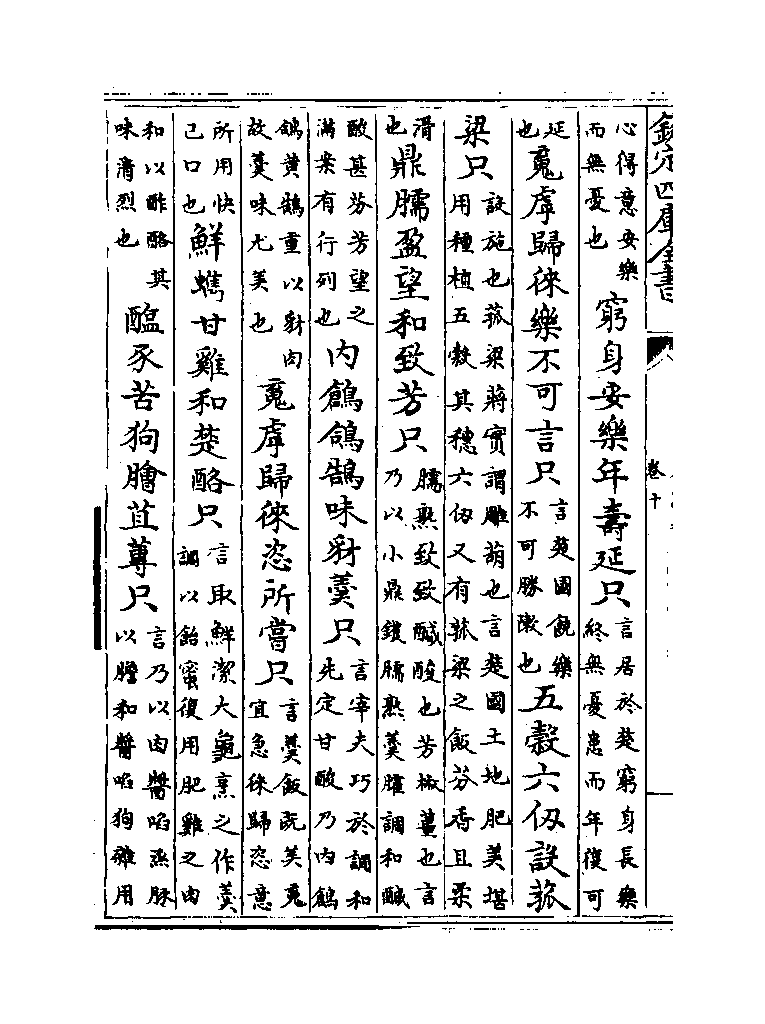 欽定四庫全書
卷十
心得意安樂
而無憂也
窮身安樂年壽延只
言居於楚窮身長樂
終無憂患而年復可
延
也
䰟虖歸徠樂不可言只
言楚國饒樂
不可勝陳也
五榖六仞設菰
粱只
設施也菰粱蔣實謂雕葫也言楚國土地肥美堪
用種植五榖其穗六仞又有菰粱之飯芬香且柔
滑
也
鼎臑盈望和致芳只
臑熟致致醎酸也芳椒薑也言
乃以小鼎鑊臑熟羹臛調和醎
酸甚芬芳望之
滿案有行列也
内鶬鴿鵠味豺羹只
言宰夫巧於調和
先定甘酸乃内鶬
鴿黄鵠重以豺肉
故羹味尤美也
䰟虖歸徠恣所嘗只
言羹飯既美䰟
宜急徠歸恣意
所用快
己口也
鮮蠵甘雞和楚酪只
言取鮮潔大龜烹之作羹
調以飴蜜復用肥雞之肉
和以酢酪其
味清烈也
醢豕苦狗膾苴蓴只
言乃以肉醬啗烝豚
以膽和醬啗狗雜用